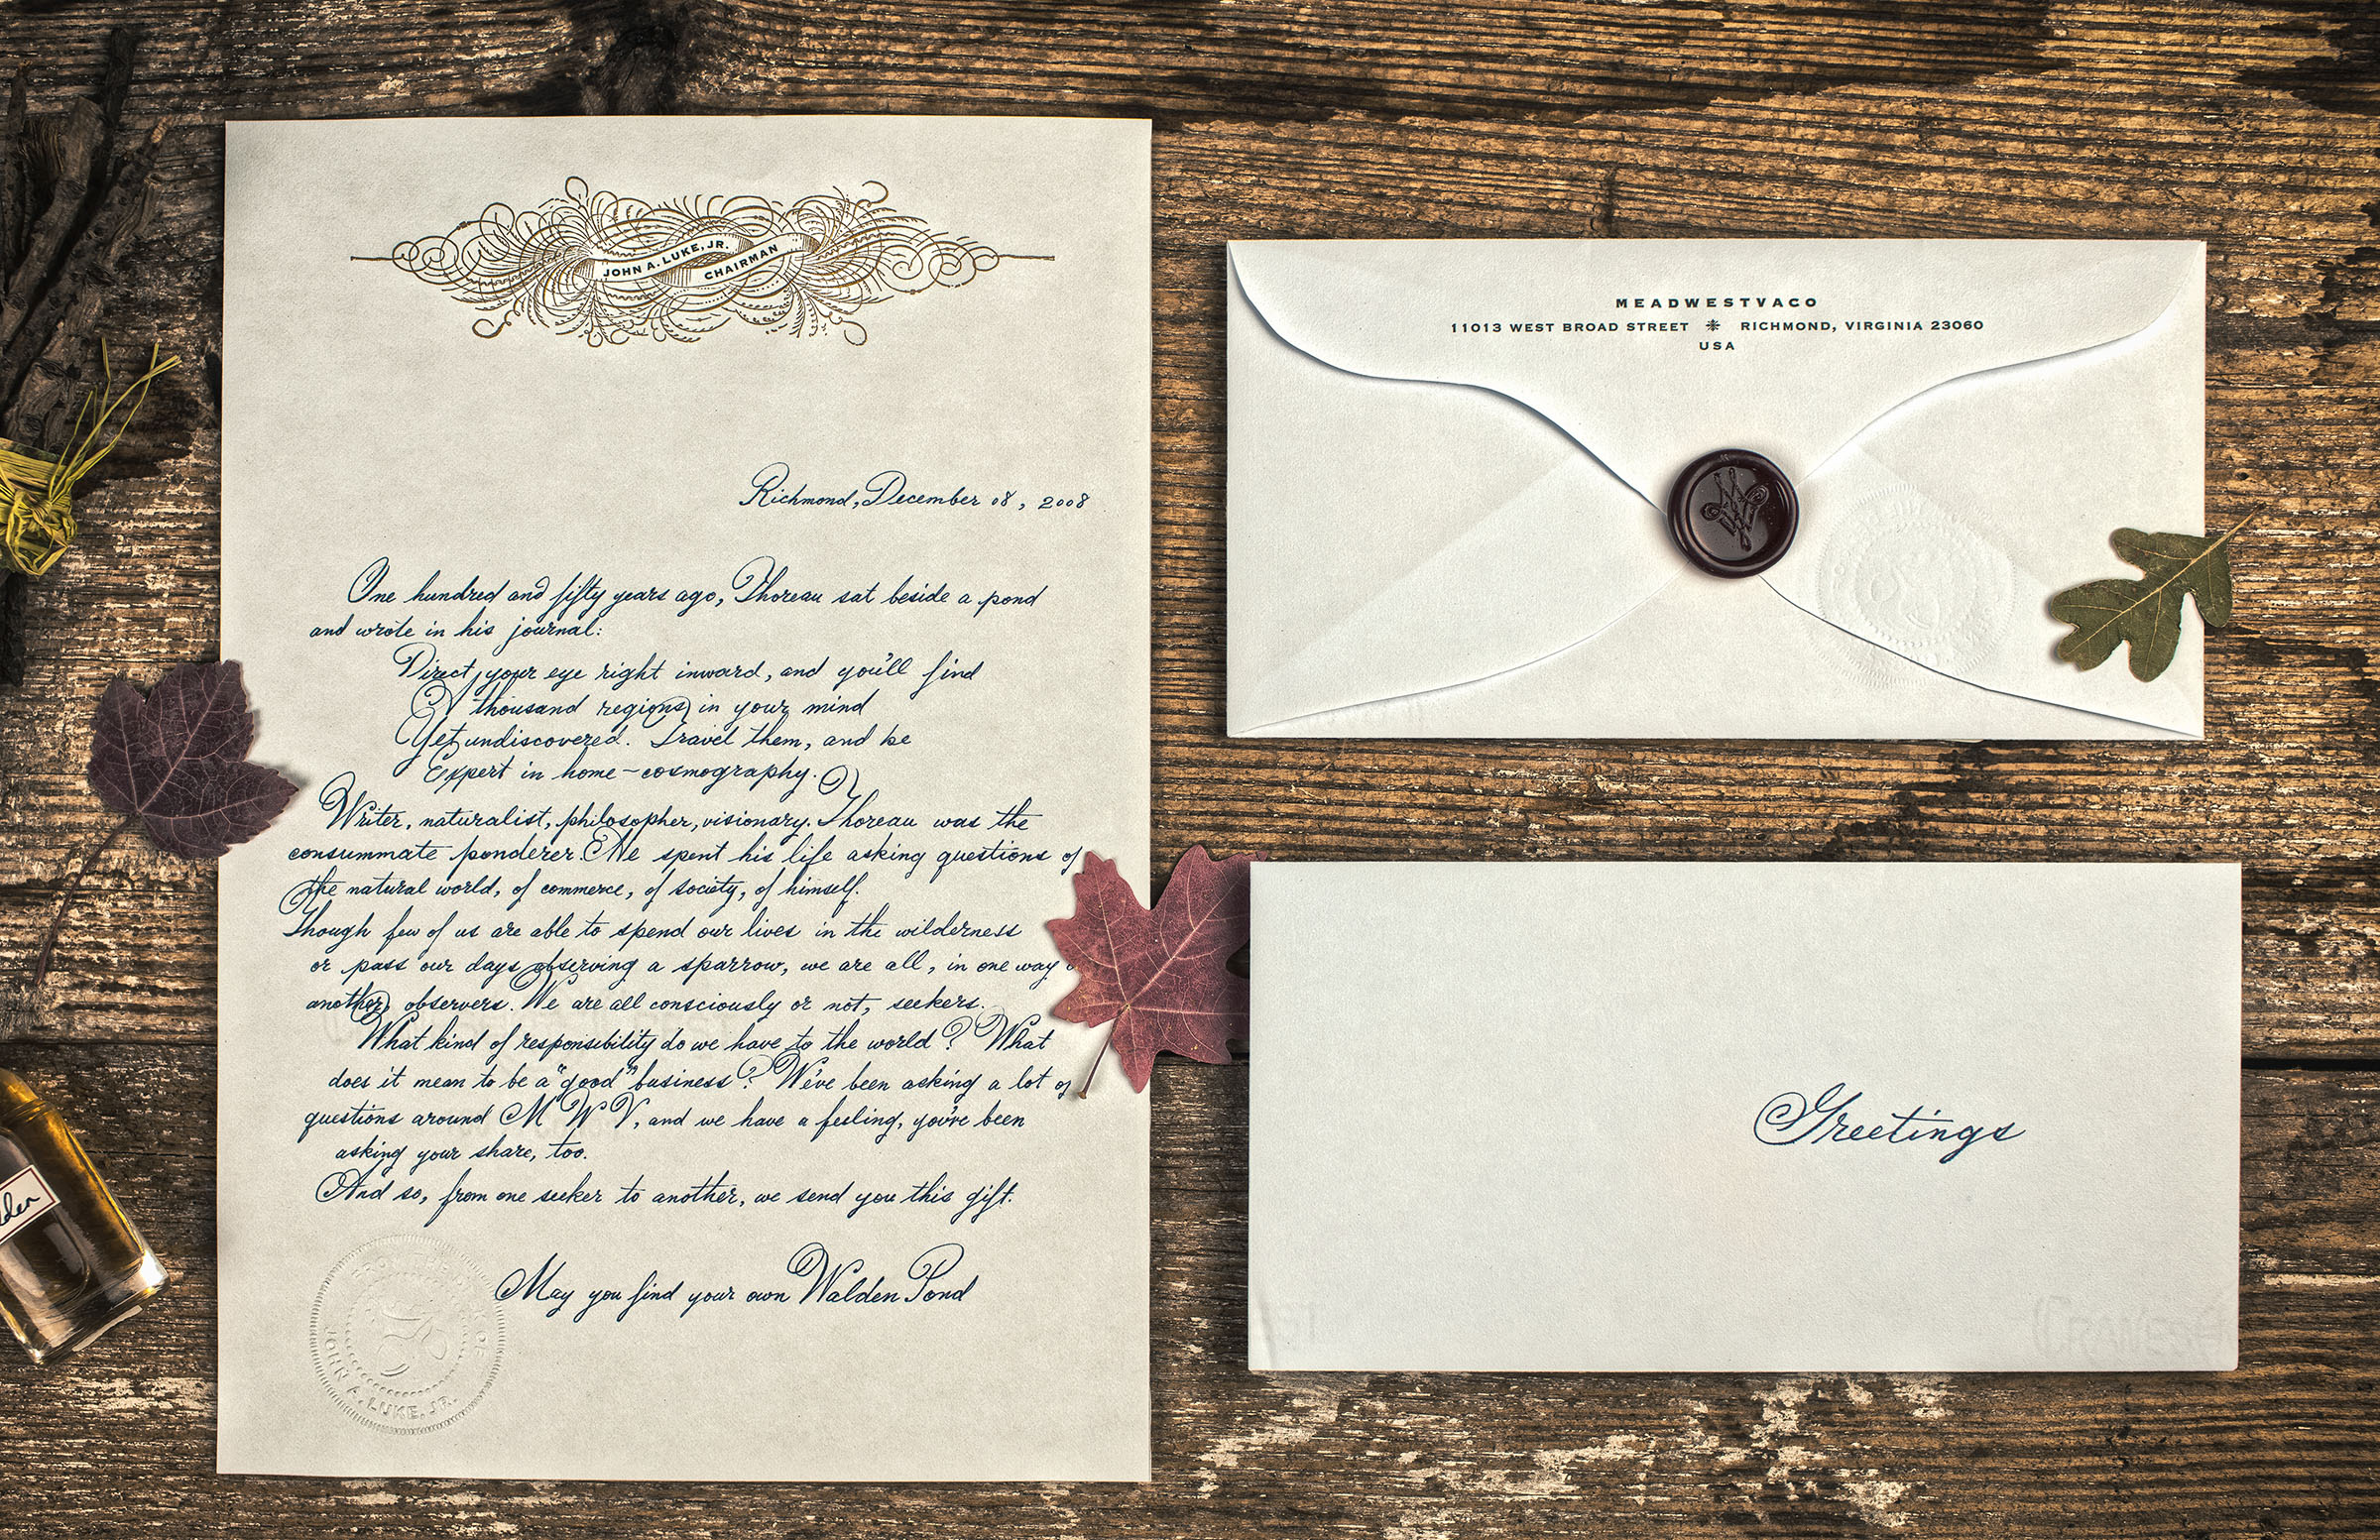 JOHN A. LUKE, JR.
CHAIRMAN
Richmond, December 08, 2008
One hundred and fifty years ago, Thoreau sat beside a pond
and wrote in his journal:
Direct your eye right inward, and you'll find
A thousand regions in your mind
Yet undiscovered. Travel them, and be
Expert in home-cosmography.
Writer, naturalist, philosopher, visionary. Thoreau was the
consummate ponderer. He spent his life asking questions of
the natural world, of commerce, of society, of himself.
Though few of us are able to spend our lives in the wilderness
or pass our days observing a sparrow, we are all, in one way
another, observers. We are all consciously or not, seekers.
What kind of responsibility do we have to the world? What
does it mean to be a "good" business? We've been asking a lot of
questions around M W V, and we have a feeling, you've been
asking your share, too.
And so, from one seeker to another, we send you this gift.
May you find your own Walden Pond
JOHN A. LUKE, JR.
MEADWESTVACO
11013 WEST BROAD STREET ❋ RICHMOND, VIRGINIA 23060
USA
Greetings
CRANE'S